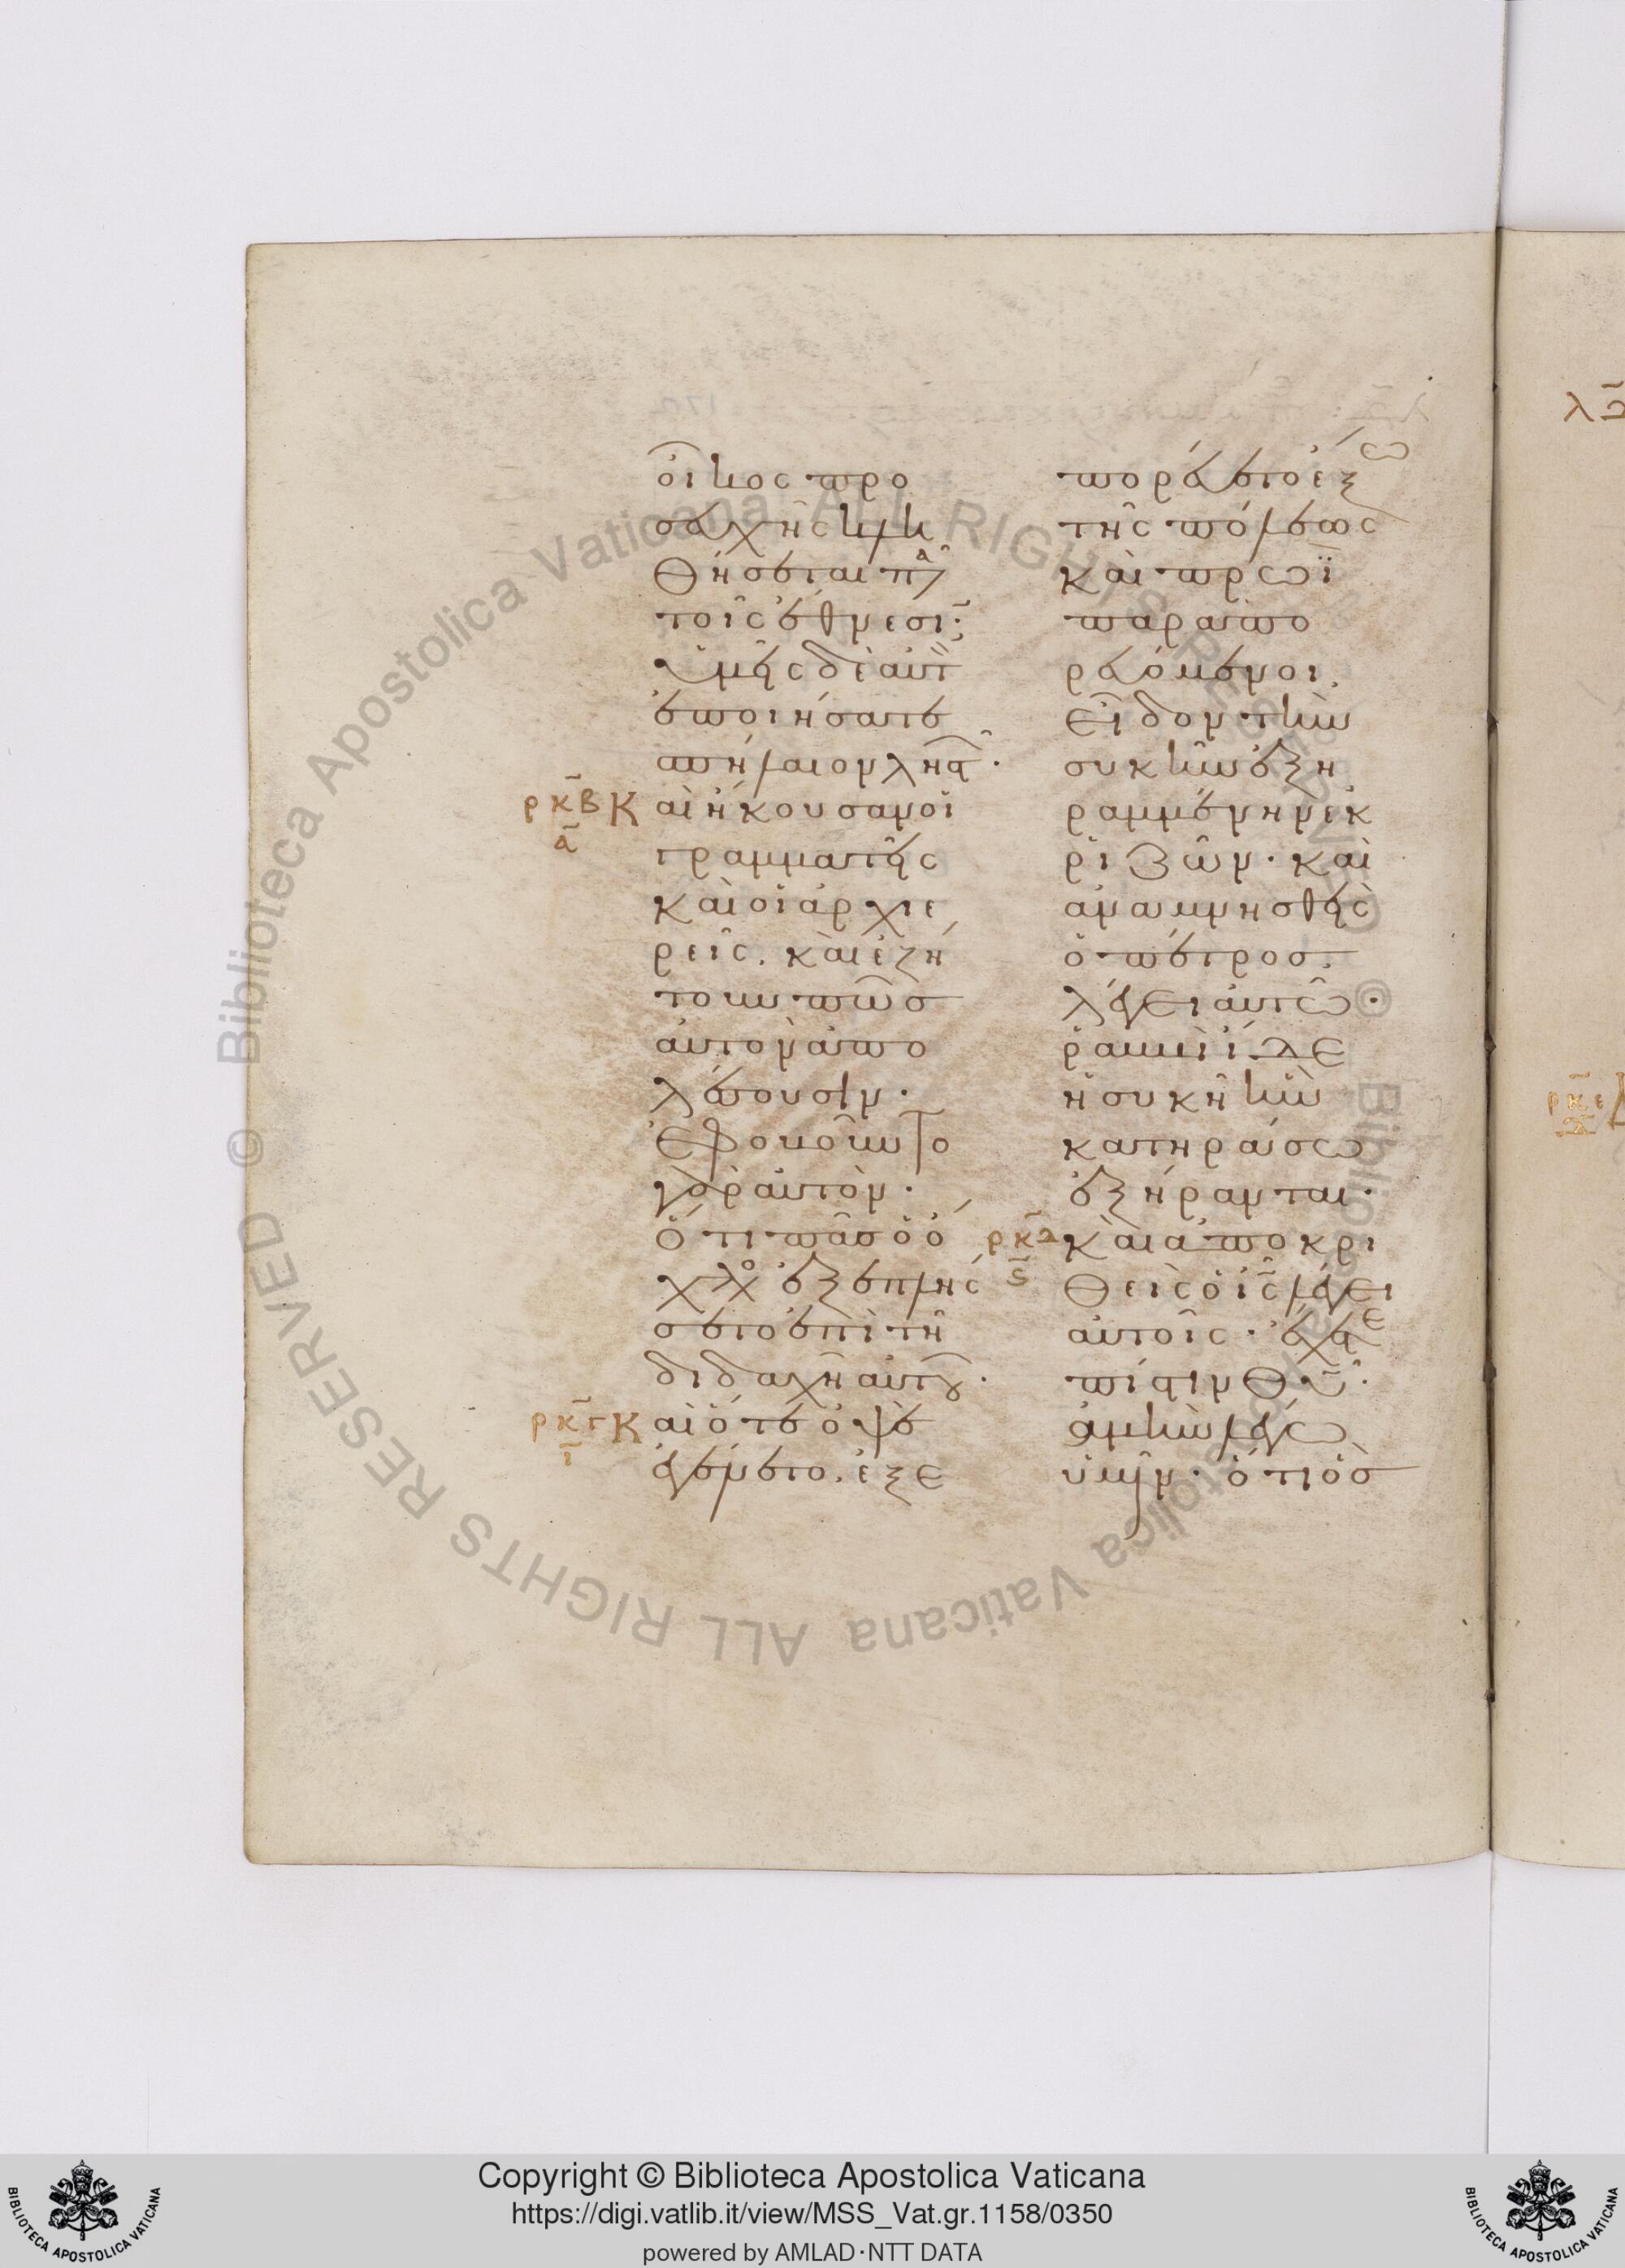 οἶκος προ
σευχῆς κλη
θήσεται πᾶ
τοῖς ἔθνεσι·
ὑμεῖς δὲ αὐτ
ἐποιήσατε
σπήλαιον ληστ·
ρκβ Καὶ ἤκουσαν οἱ
α γραμματεῖς
καὶ οἱ ἀρχιε
ρεῖς. καὶ ἐζή
τουν πῶσ
αὐτὸν ἀπο
λέσουσιν·
Ἐφοβοῦντο
γὰρ αὐτόν·
Ὅτι πᾶσ ὁ ὄ
χλο ἐξεπλής
σετο ἐπὶ τῆ
διδαχῆ αὐτοῦ·
ρκγ Καὶ ὅτε ὀψὲ
ι ἐγένετο. ἐξε
πορεύετο ἔξω
τῆς πόλεως
καὶ πρωῒ
παραπο
ρευόμενοι.
εἶδον τὴν
συκῆν ἐξη
ραμμένην ἐκ
ριζῶν· καὶ
ἀναμνησθεὶς
ὁ πέτροσ.
λέγει αὐτῶ·
ῥαββὶ ἴδε
ἡ συκῆ ἣν
κατηράσω
ἐξήρανται·
ρκδ Καὶ ἀποκρι
ς θεὶς ὁ ις λέγει
αὐτοῖς· ἔχετε
πίστιν θυ·
ἀμὴν λέγω
ὑμῖν· ὅτι ὃσ
λδ
ρκε
© Biblioteca Apostolica Vaticana ALL RIGHTS RESERVED © Biblioteca Apostolica Vaticana ALL RIGHTS RESERVED
Copyright © Biblioteca Apostolica Vaticana
https://digi.vatlib.it/view/MSS_Vat.gr.1158/0350
powered by AMLAD·NTT DATA
BIBLIOTECA APOSTOLICA VATICANA
BIBLIOTECA APOSTOLICA VATICANA